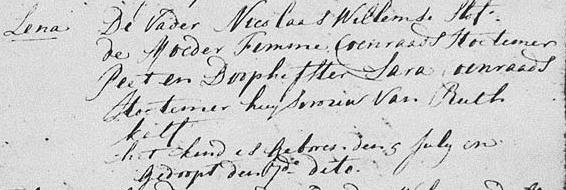 Lena De Vader Nicolaas Willemse Hof-
de Moeder Femme Coenraads Stoetemer
Peet en Doophefster Sara Coenraads
Stoetemer huysvrouw Van Ruth
het kind is gebooren den 5 July en
Gedoopt den 7de dito.